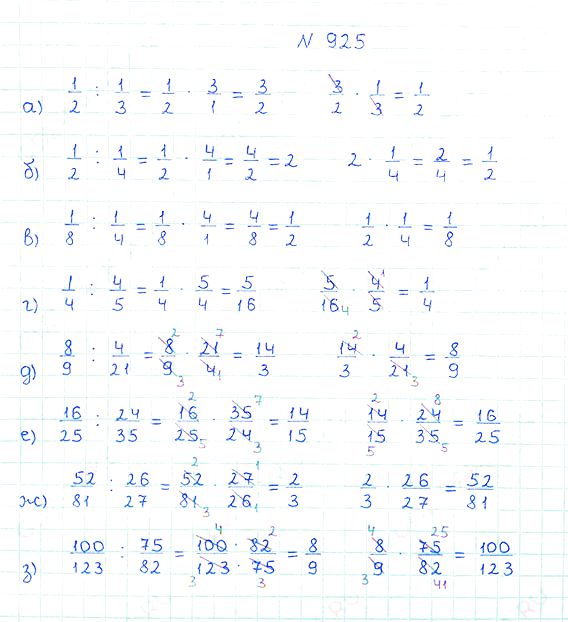 N 925
а) 1/2 : 1/3 = 1/2 · 3/1 = 3/2 3/2 · 1/3 = 1/2
б) 1/2 : 1/4 = 1/2 · 4/1 = 4/2 = 2 2 · 1/4 = 2/4 = 1/2
в) 1/8 : 1/4 = 1/8 · 4/1 = 4/8 = 1/2 1/2 · 1/4 = 1/8
г) 1/4 : 4/5 = 1/4 · 5/4 = 5/16 5/16 4 · 4/5 1 = 1/4
д) 8/9 : 4/21 = 8/9 2 3 · 21/4 7 1 = 14/3 14/3 2 · 4/21 3 = 8/9
е) 16/25 : 24/35 = 16/25 2 5 · 35/24 7 3 = 14/15 14/15 2 5 · 24/35 8 5 = 16/25
ж) 52/81 : 26/27 = 52/81 2 3 · 27/26 1 1 = 2/3 2/3 · 26/27 = 52/81
з) 100/123 : 75/82 = 100 · 82/123 · 75 4 2 3 3 = 8/9 8/9 4 3 · 75/82 25 41 = 100/123